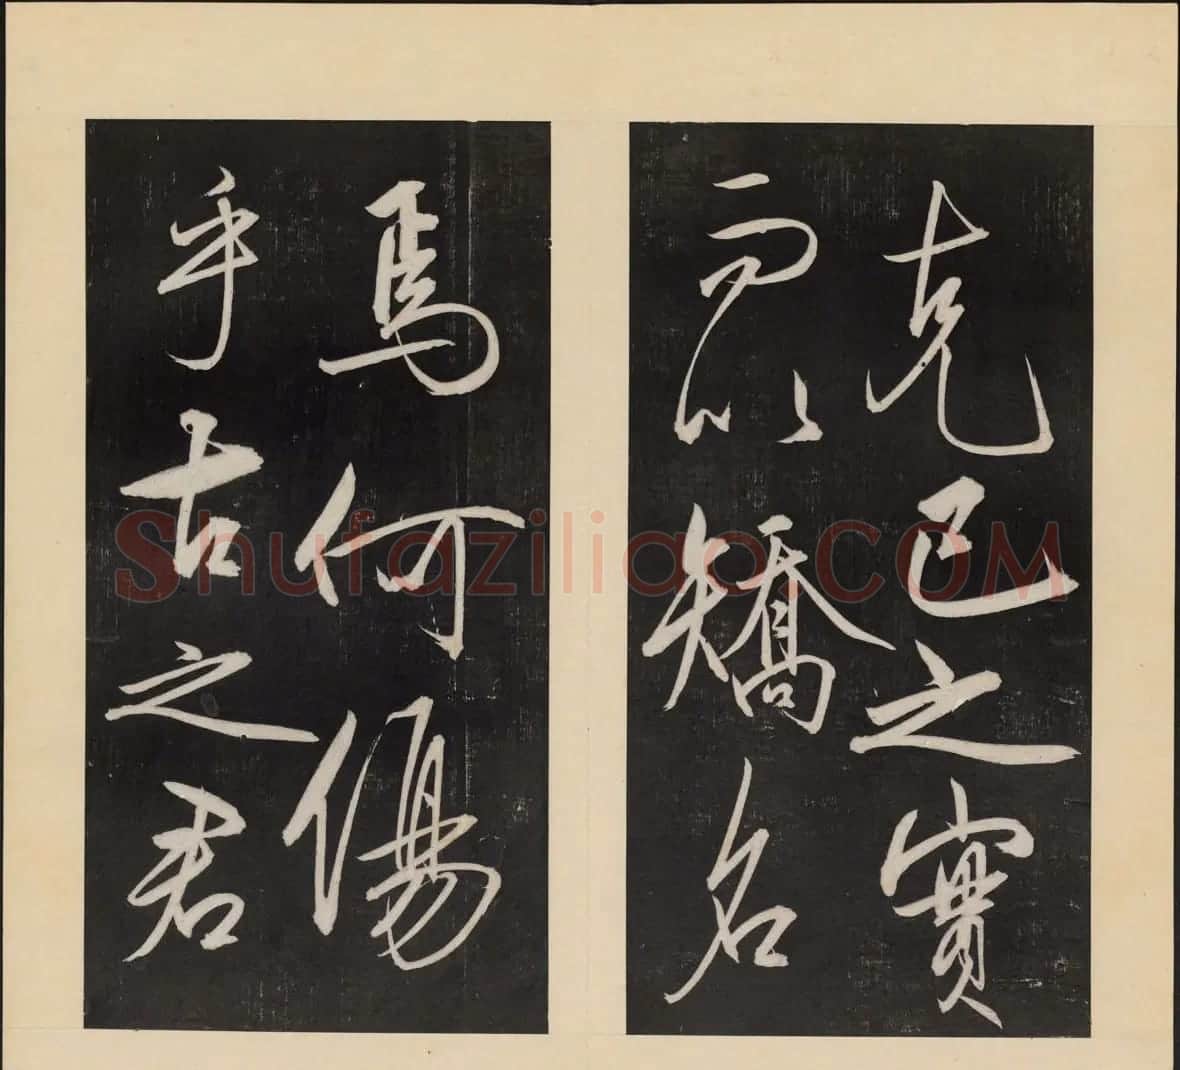 克己之實
而以矯名
焉何傷
乎古之君
Shufaziliao.COM